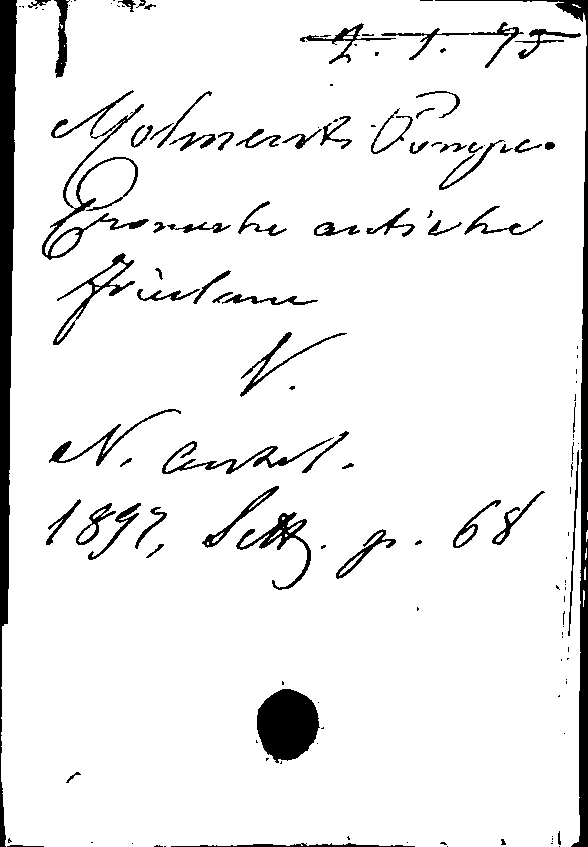 2. 1. 73
Molmenti Pompeo.
Cronache antiche
friulane
V.
N. Antol.
1897, Sett. p. 68